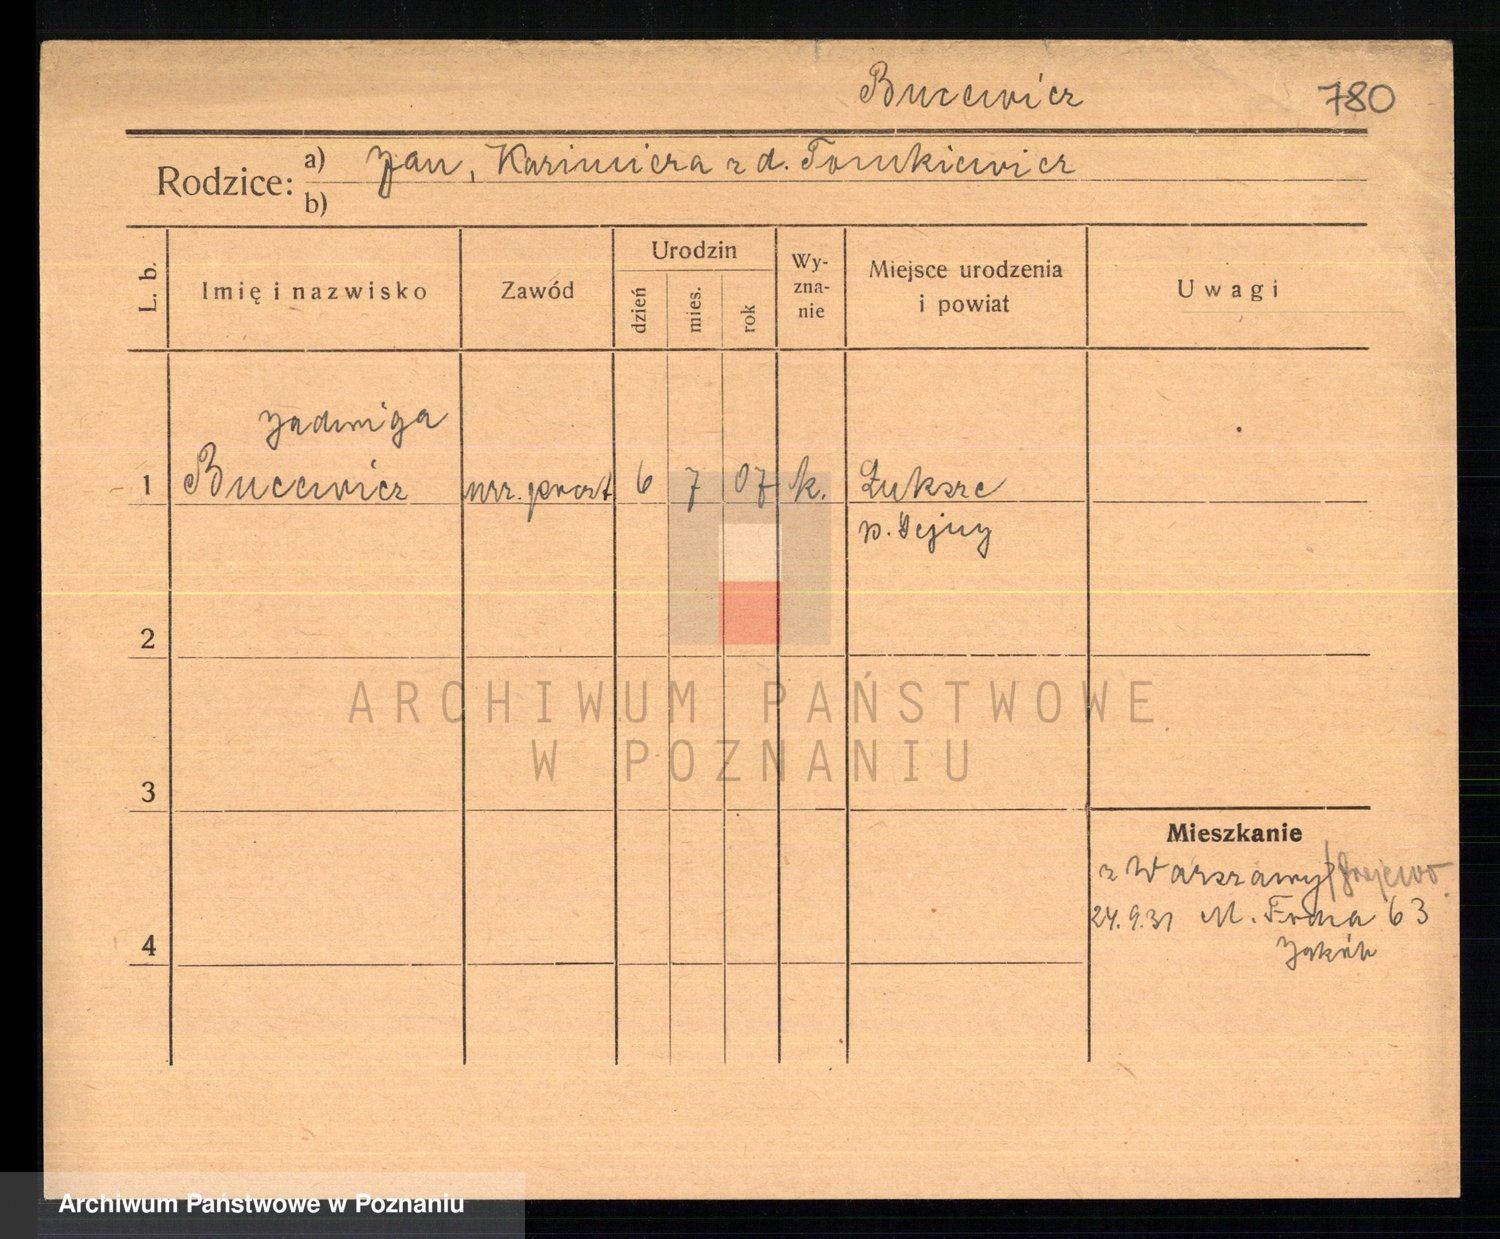 Bucewicz
780
Rodzice:
a) Jan, Kazimiera z d. Tomkiewicz
b)
L. b.
Imię i nazwisko
Zawód
Urodzin
dzień
mies.
rok
Wy-
zna-
nie
Miejsce urodzenia
i powiat
Uwagi
Jadwiga
1 Bucewicz urz. poczt 6 7 07 k.
p. Sejny
2
3
4
Mieszkanie
z Warszawy
24.9.31 M. Focha 63
ARCHIWUM PAŃSTWOWE
W POZNANIU
Archiwum Państwowe w Poznaniu